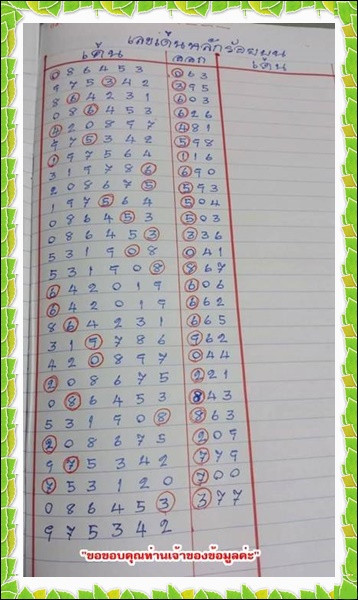 เลขเด่นหลักร้อยบน
เด่น ออก เด่น
0 8 6 4 5 3 0 6 3
9 7 5 3 4 2 3 9 5
8 6 4 2 3 1 6 0 3
0 8 6 4 5 3 6 2 6
6 2 0 8 9 7 4 8 1
9 7 5 3 4 2 5 9 8
1 9 7 5 6 4 1 1 6
3 1 9 7 8 6 6 9 0
2 0 8 6 7 5 5 9 3
1 9 7 5 6 4 5 0 4
0 8 6 4 5 3 5 0 3
0 8 6 4 5 3 3 3 6
5 3 1 9 0 8 0 4 1
5 3 1 9 0 8 8 6 7
6 4 2 0 1 9 6 0 6
6 4 2 0 1 9 6 6 2
8 6 4 2 3 1 6 6 5
3 1 9 7 8 6 9 6 2
4 2 0 8 9 7 0 4 4
2 0 8 6 7 5 2 2 1
0 8 6 4 5 3 8 4 3
5 3 1 9 0 8 8 6 3
2 0 8 6 7 5 2 0 9
9 7 5 3 4 2 7 7 9
7 5 3 1 2 0 7 0 0
0 8 6 4 5 3 3 7 7
9 7 5 3 4 2
"ขอขอบคุณท่านเจ้าของข้อมูลค่ะ"